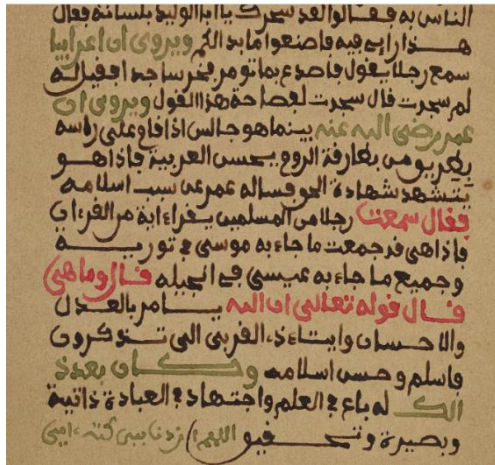 الناس به فقالوا لقد سحرك يا ابا الوليد بلسانه فقال
هذا رايي فيه فاصنعوا ما بدا لكم ويروى ان اعرابيا
سمع رجلا يقول فاصدع بما تومر فخر ساجدا فقيل له
لم سجدت قال سجدت لفصاحة هذا القول ويروى ان
عمر رضى الله عنه بينما هو جالس اذا فاق على راسه
بطريق من بطارقة الروم يحسن العربية فاذا هو
يتشهد شهادة الحق فساله عمر عن سبب اسلامه
فقال سمعت رجلا من المسلمين يقراء اية من القرءان
فاذا هى قد جمعت ما جاء به موسى في توريه
وجميع ما جاء به عيسى في انجيله قال وما هي
قال قوله تعالى ان الله يامر بالعدل
والاحسان وايتاءذ، القربى الى تذكرون
فاسلم وحسن اسلامه وكان بعد ذ
الك له باع في العلم واجتهاد في العبادة ذاتية
وبصيرة وتحقيق اللهم زدنا